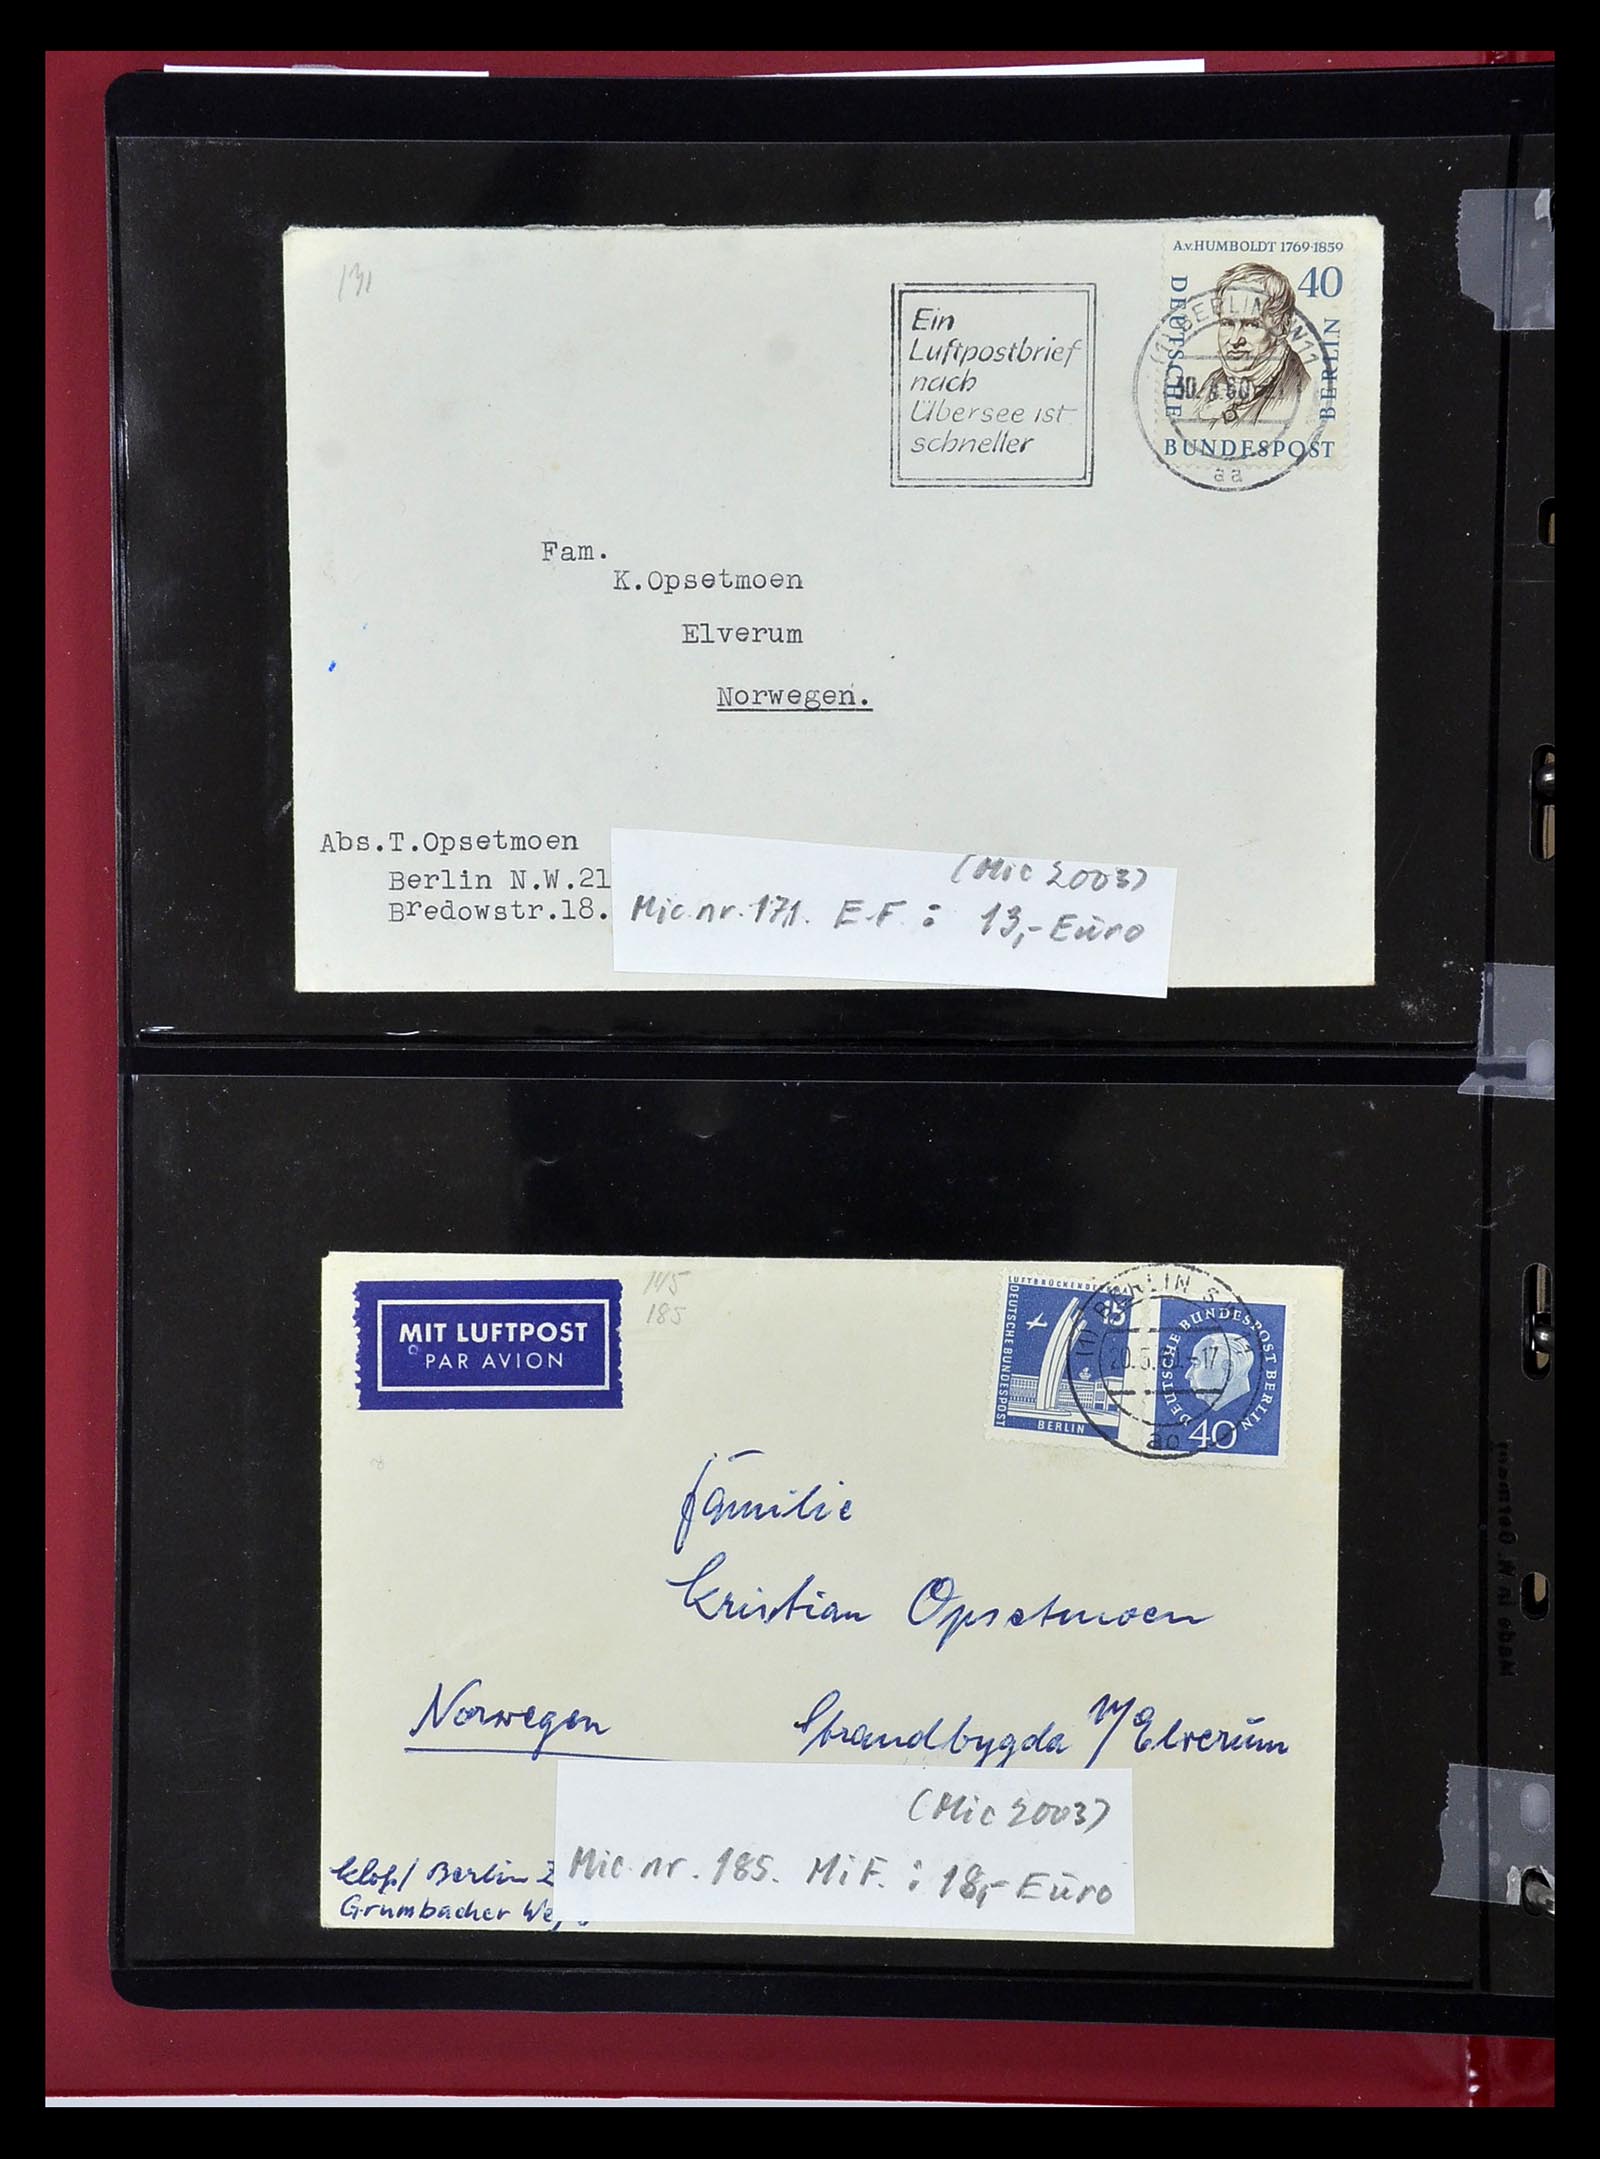 131
A.v.HUMBOLDT 1769·1859
40
DEUTSCHE
BUNDESPOST
BERLIN
(1) BERLIN SW11
aa
Ein
Luftpostbrief
nach
Übersee ist
schneller
Fam.
K.Opsetmoen
Elverum
Norwegen.
Abs.T.Opsetmoen
Berlin N.W.21
Bredowstr.18.
(Mic 2003)
Mic.nr.171. E.F.: 13,- Euro
145
185
MIT LUFTPOST
PAR AVION
DEUTSCHE BUNDESPOST
15
BERLIN
DEUTSCHE BUNDESPOST BERLIN
40
BERLIN
20.5.
-17
ao
Familie
Kristian Opsetmoen
Norwegen
Strandbygda v/Elverum
(Mic 2003)
Mic.nr.185. MiF.: 18,- Euro
Berlin
Grumbacher
Made in W. Germany